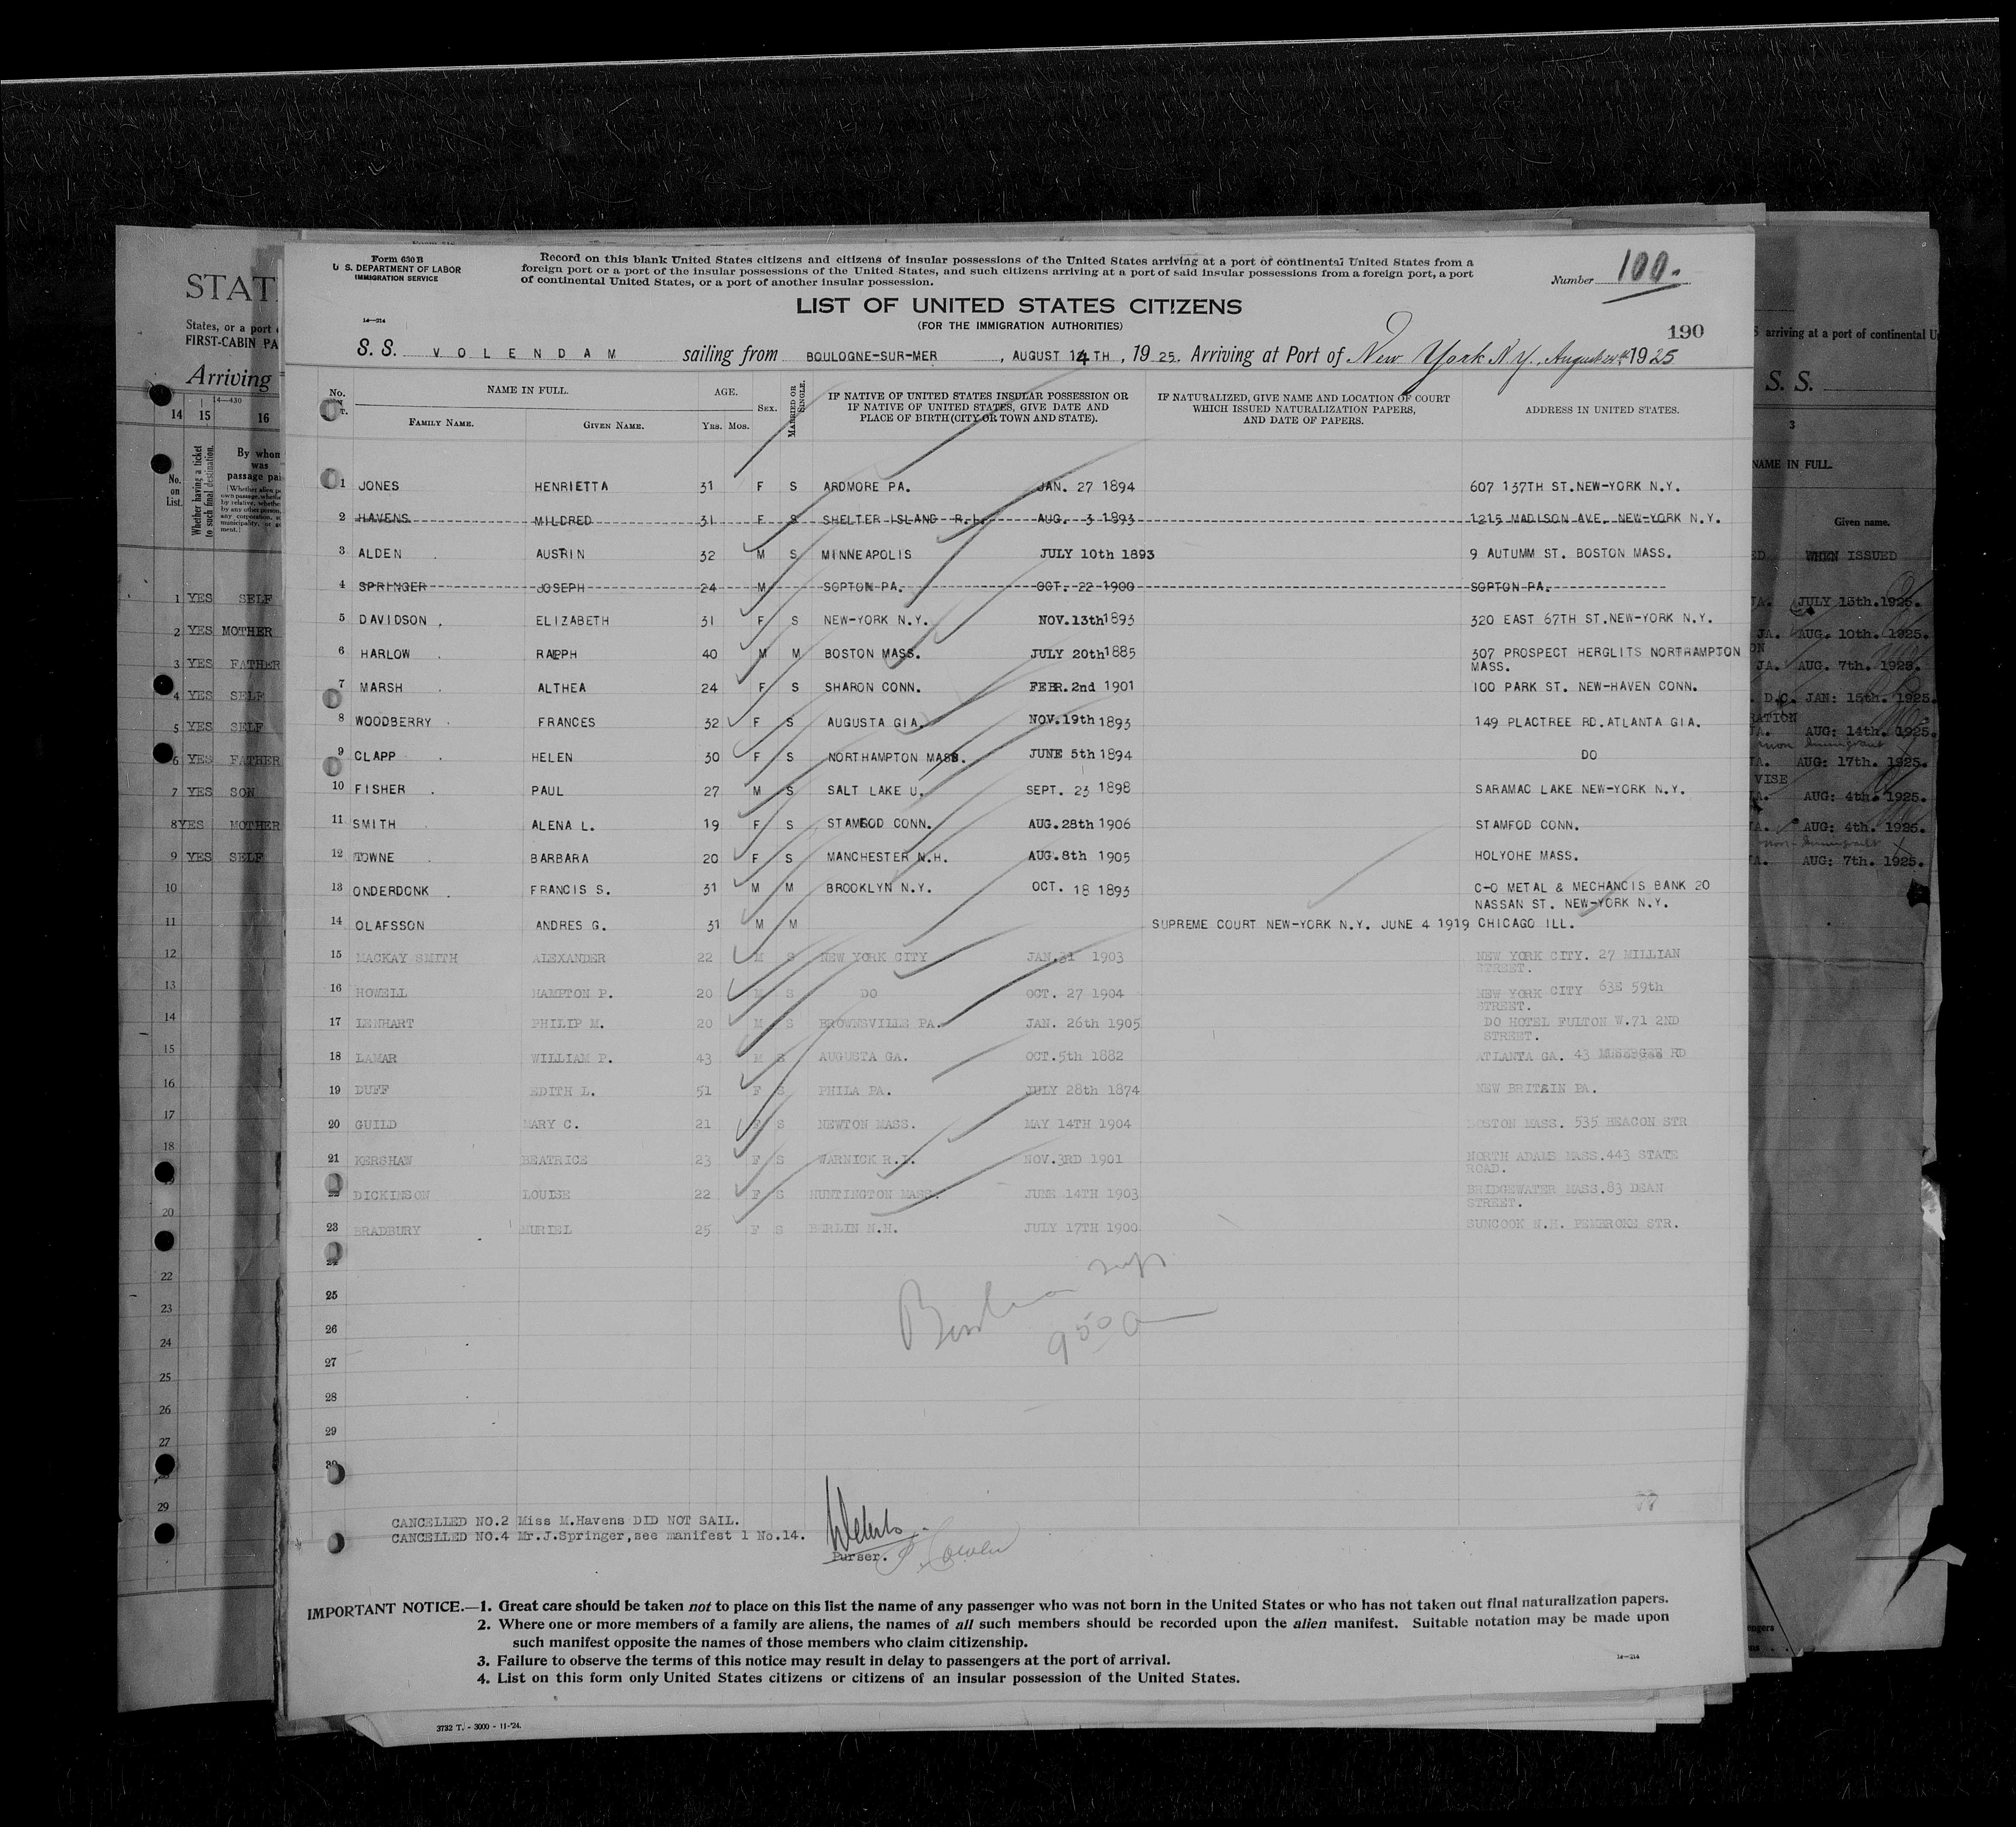 Form 630 B
U. S. DEPARTMENT OF LABOR
IMMIGRATION SERVICE
Record on this blank United States citizens and citizens of insular possessions of the United States arriving at a port of continental United States from a
foreign port or a port of the insular possessions of the United States, and such citizens arriving at a port of said insular possessions from a foreign port, a port
of continental United States, or a port of another insular possession.
Number 100.
LIST OF UNITED STATES CITIZENS
(FOR THE IMMIGRATION AUTHORITIES)
14—214
190
S. S. VOLENDAM sailing from BOULOGNE-SUR-MER, AUGUST 14TH, 1925. Arriving at Port of New York N.Y. August 24th 1925
No. NAME IN FULL. AGE. SEX. MARRIED OR SINGLE. IF NATIVE OF UNITED STATES INSULAR POSSESSION OR IF NATIVE OF UNITED STATES, GIVE DATE AND PLACE OF BIRTH (CITY OR TOWN AND STATE). IF NATURALIZED, GIVE NAME AND LOCATION OF COURT WHICH ISSUED NATURALIZATION PAPERS, AND DATE OF PAPERS. ADDRESS IN UNITED STATES.
FAMILY NAME. GIVEN NAME. YRS. MOS.
1 JONES HENRIETTA 31 F S ARDMORE PA. JAN. 27 1894 607 137TH ST.NEW-YORK N.Y.
2 HAVENS MILDRED 31 F S SHELTER ISLAND R.I. AUG. 3 1893 1215 MADISON AVE. NEW-YORK N.Y.
3 ALDEN AUSTIN 32 M S MINNEAPOLIS JULY 10th 1893 9 AUTUMM ST. BOSTON MASS.
4 SPRINGER JOSEPH 24 M SOPTON PA. OCT. 22 1900 SOPTON PA.
5 DAVIDSON ELIZABETH 31 F S NEW-YORK N.Y. NOV.13th1893 320 EAST 67TH ST.NEW-YORK N.Y.
6 HARLOW RALPH 40 M M BOSTON MASS. JULY 20th1885 307 PROSPECT HERGLITS NORTHAMPTON
MASS.
7 MARSH ALTHEA 24 F S SHARON CONN. FEBR.2nd 1901 100 PARK ST. NEW-HAVEN CONN.
8 WOODBERRY FRANCES 32 F S AUGUSTA GIA. NOV.19th1893 149 PLACTREE RD.ATLANTA GIA.
9 CLAPP HELEN 30 F S NORTHAMPTON MASS. JUNE 5th 1894 DO
10 FISHER PAUL 27 M S SALT LAKE U. SEPT. 23 1898 SARAMAC LAKE NEW-YORK N.Y.
11 SMITH ALENA L. 19 F S STAMFOD CONN. AUG.28th 1906 STAMFOD CONN.
12 TOWNE BARBARA 20 F S MANCHESTER N.H. AUG.8th 1905 HOLYOHE MASS.
13 ONDERDONK FRANCIS S. 31 M M BROOKLYN N.Y. OCT. 18 1893 C-O METAL & MECHANCIS BANK 20
NASSAN ST. NEW-YORK N.Y.
14 OLAFSSON ANDRES G. 31 M M SUPREME COURT NEW-YORK N.Y. JUNE 4 1919 CHICAGO ILL.
15 MACKAY SMITH ALEXANDER 22 M S NEW YORK CITY JAN.31 1903 NEW YORK CITY. 27 MILLIAN
STREET.
16 HOWELL HAMPTON P. 20 M S DO OCT. 27 1904 NEW YORK CITY 63E 59th
STREET.
17 LENHART PHILIP M. 20 M S BROWNSVILLE PA. JAN. 26th 1905 DO HOTEL FULTON W.71 2ND
STREET.
18 LAMAR WILLIAM P. 43 M S AUGUSTA GA. OCT.5th 1882 ATLANTA GA. 43 RD
19 DUFF EDITH L. 51 F S PHILA PA. JULY 28th 1874 NEW BRITAIN PA.
20 GUILD MARY C. 21 F S NEWTON MASS. MAY 14TH 1904 BOSTON MASS. 535 BEACON STR
21 KERSHAW BEATRICE 23 F S WARNICK R.I. NOV.3RD 1901 NORTH ADAMS MASS.443 STATE
ROAD.
22 DICKINSON LOUISE 22 F S HUNTINGTON MASS. JUNE 14TH 1903 BRIDGEWATER MASS.83 DEAN
STREET.
23 BRADBURY MURIEL 25 F S BERLIN N.H. JULY 17TH 1900 SUNCOOK N.H. PEMBROKE STR.
24
25
26
27
28
29
30
950 a
77
CANCELLED NO.2 Miss M.Havens DID NOT SAIL.
CANCELLED NO.4 Mr.J.Springer,see manifest 1 No.14.
Purser.
IMPORTANT NOTICE.—1. Great care should be taken not to place on this list the name of any passenger who was not born in the United States or who has not taken out final naturalization papers.
2. Where one or more members of a family are aliens, the names of all such members should be recorded upon the alien manifest. Suitable notation may be made upon
such manifest opposite the names of those members who claim citizenship.
3. Failure to observe the terms of this notice may result in delay to passengers at the port of arrival.
4. List on this form only United States citizens or citizens of an insular possession of the United States.
14—214
3732 T. - 3000 - 11-'24.
STAT
States, or a port
FIRST-CABIN PA
Arriving
14—430
14 15 16
No. on List.
Whether having a ticket to such final destination.
By whom was passage pai
1 YES SELF
2 YES MOTHER
3 YES FATHER
4 YES SELF
5 YES SELF
6 YES FATHER
7 YES SON
8YES MOTHER
9 YES SELF
10
11
12
13
14
15
16
17
18
20
22
23
24
25
26
27
29
S arriving at a port of continental U
S. S.
3
NAME IN FULL.
Given name.
ED WHEN ISSUED
JULY 13th.1925.
AUG. 10th. 1925.
AUG. 7th. 1925.
D.C. JAN: 15th. 1925.
RATION
AUG: 14th. 1925.
AUG: 17th. 1925.
VISE
AUG: 4th. 1925.
AUG: 4th. 1925.
AUG: 7th. 1925.